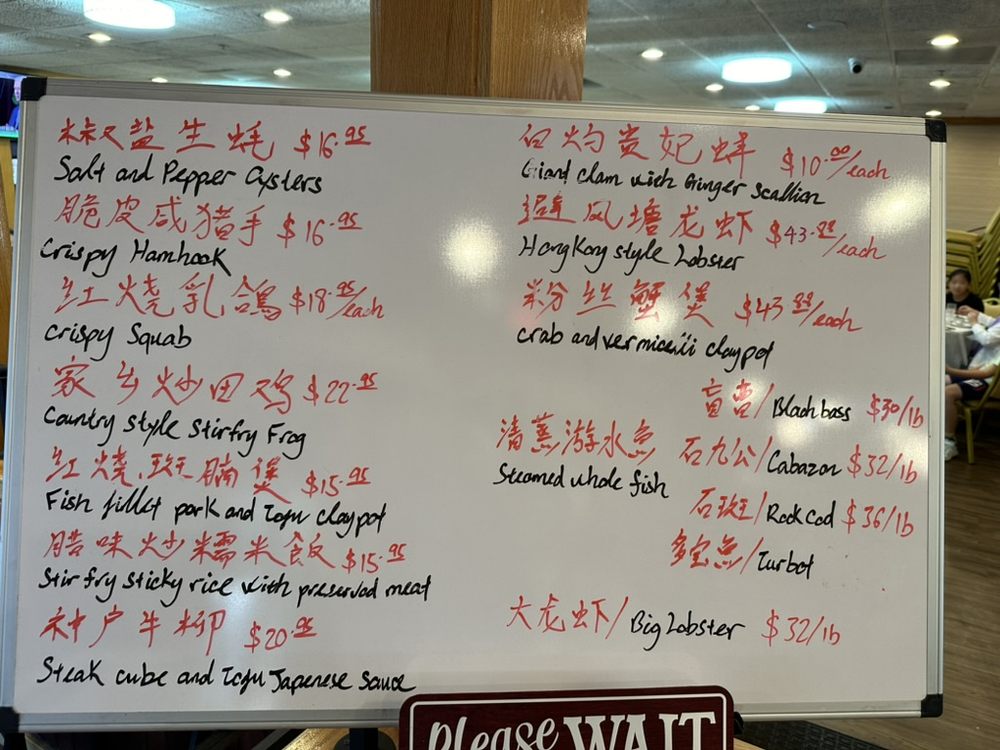 椒盐生蚝 $16.95
Salt and Pepper Oysters
脆皮咸猪手 $16.95
Crispy Hamhock
红烧乳鸽 $18.95/each
Crispy Squab
家乡炒田鸡 $22.95
Country style Stirfry Frog
红烧斑腩煲 $15.95
Fish fillet pork and Tofu claypot
腊味炒糯米飯 $15.95
Stir fry sticky rice with preserved meat
神户牛柳 $20.95
Steak cube and Tofu Japenese Sauce
白灼贵妃蚌 $10.00/each
Giand clam with Ginger Scallion
避风塘龙虾 $43.88/each
HongKong style Lobster
粉丝蟹煲 $43.88/each
crab and vermicilli claypot
盲曹/Blach bass $30/lb
清蒸游水魚
Steamed whole fish
石九公/Cabazon $32/lb
石斑/Rock Cod $36/lb
多宝魚/Turbot
大龙虾/Big Lobster $32/lb
Please WAIT